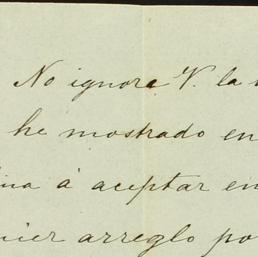 No ignora V. la
he mostrado en
á aceptar en
arreglo po